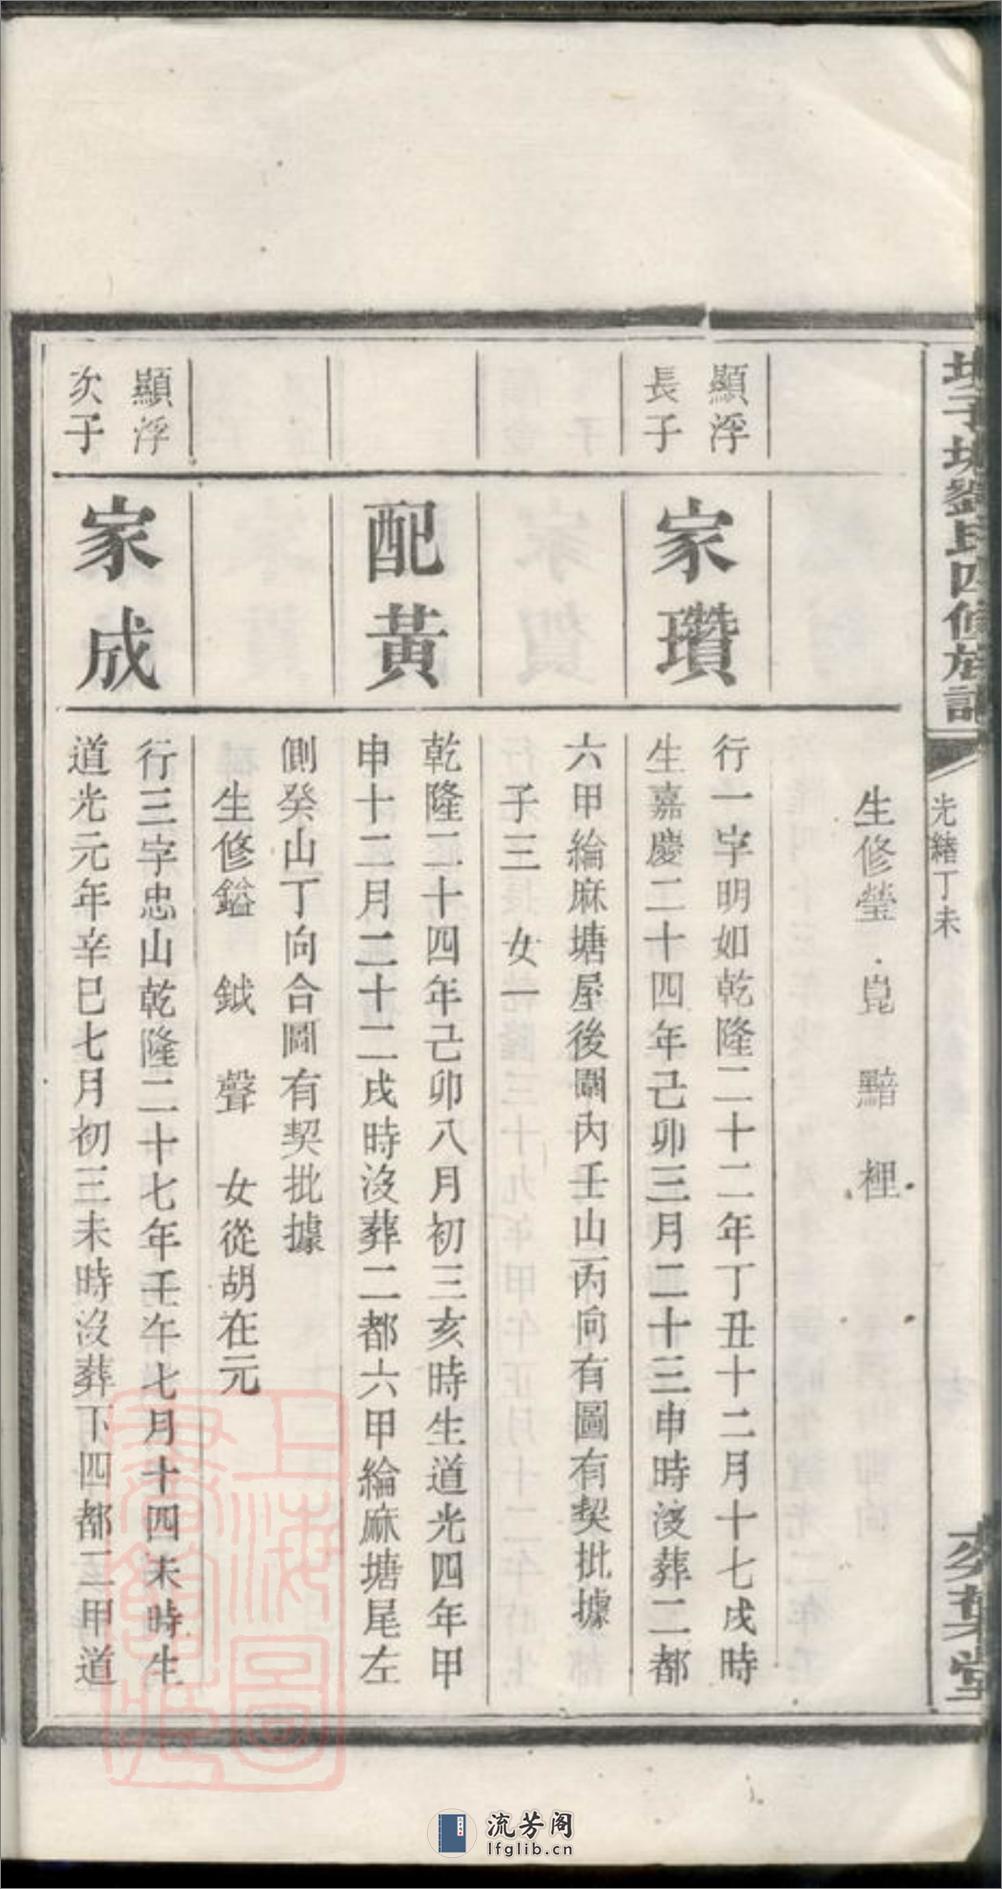 劉氏四修族譜
光緒丁未
葉堂
生修瑩 崑 黯 裡
顯浮
長子
家瓚
行一字明如乾隆二十二年丁丑十二月十七戌時
生嘉慶二十四年己卯三月二十三申時沒葬二都
六甲綸麻塘屋後圍內壬山丙向有圖有契批據
子三 女一
配黃
乾隆二十四年己卯八月初三亥時生道光四年甲
申十二月二十二戌時沒葬二都六甲綸麻塘尾左
側癸山丁向合圖有契批據
生修鎰 鉞 聲 女從胡在元
顯浮
次子
家成
行三字忠山乾隆二十七年壬午七月十四未時生
道光元年辛巳七月初三未時沒葬下四都三甲道
上海圖書館藏
流芳阁
lfglib.cn